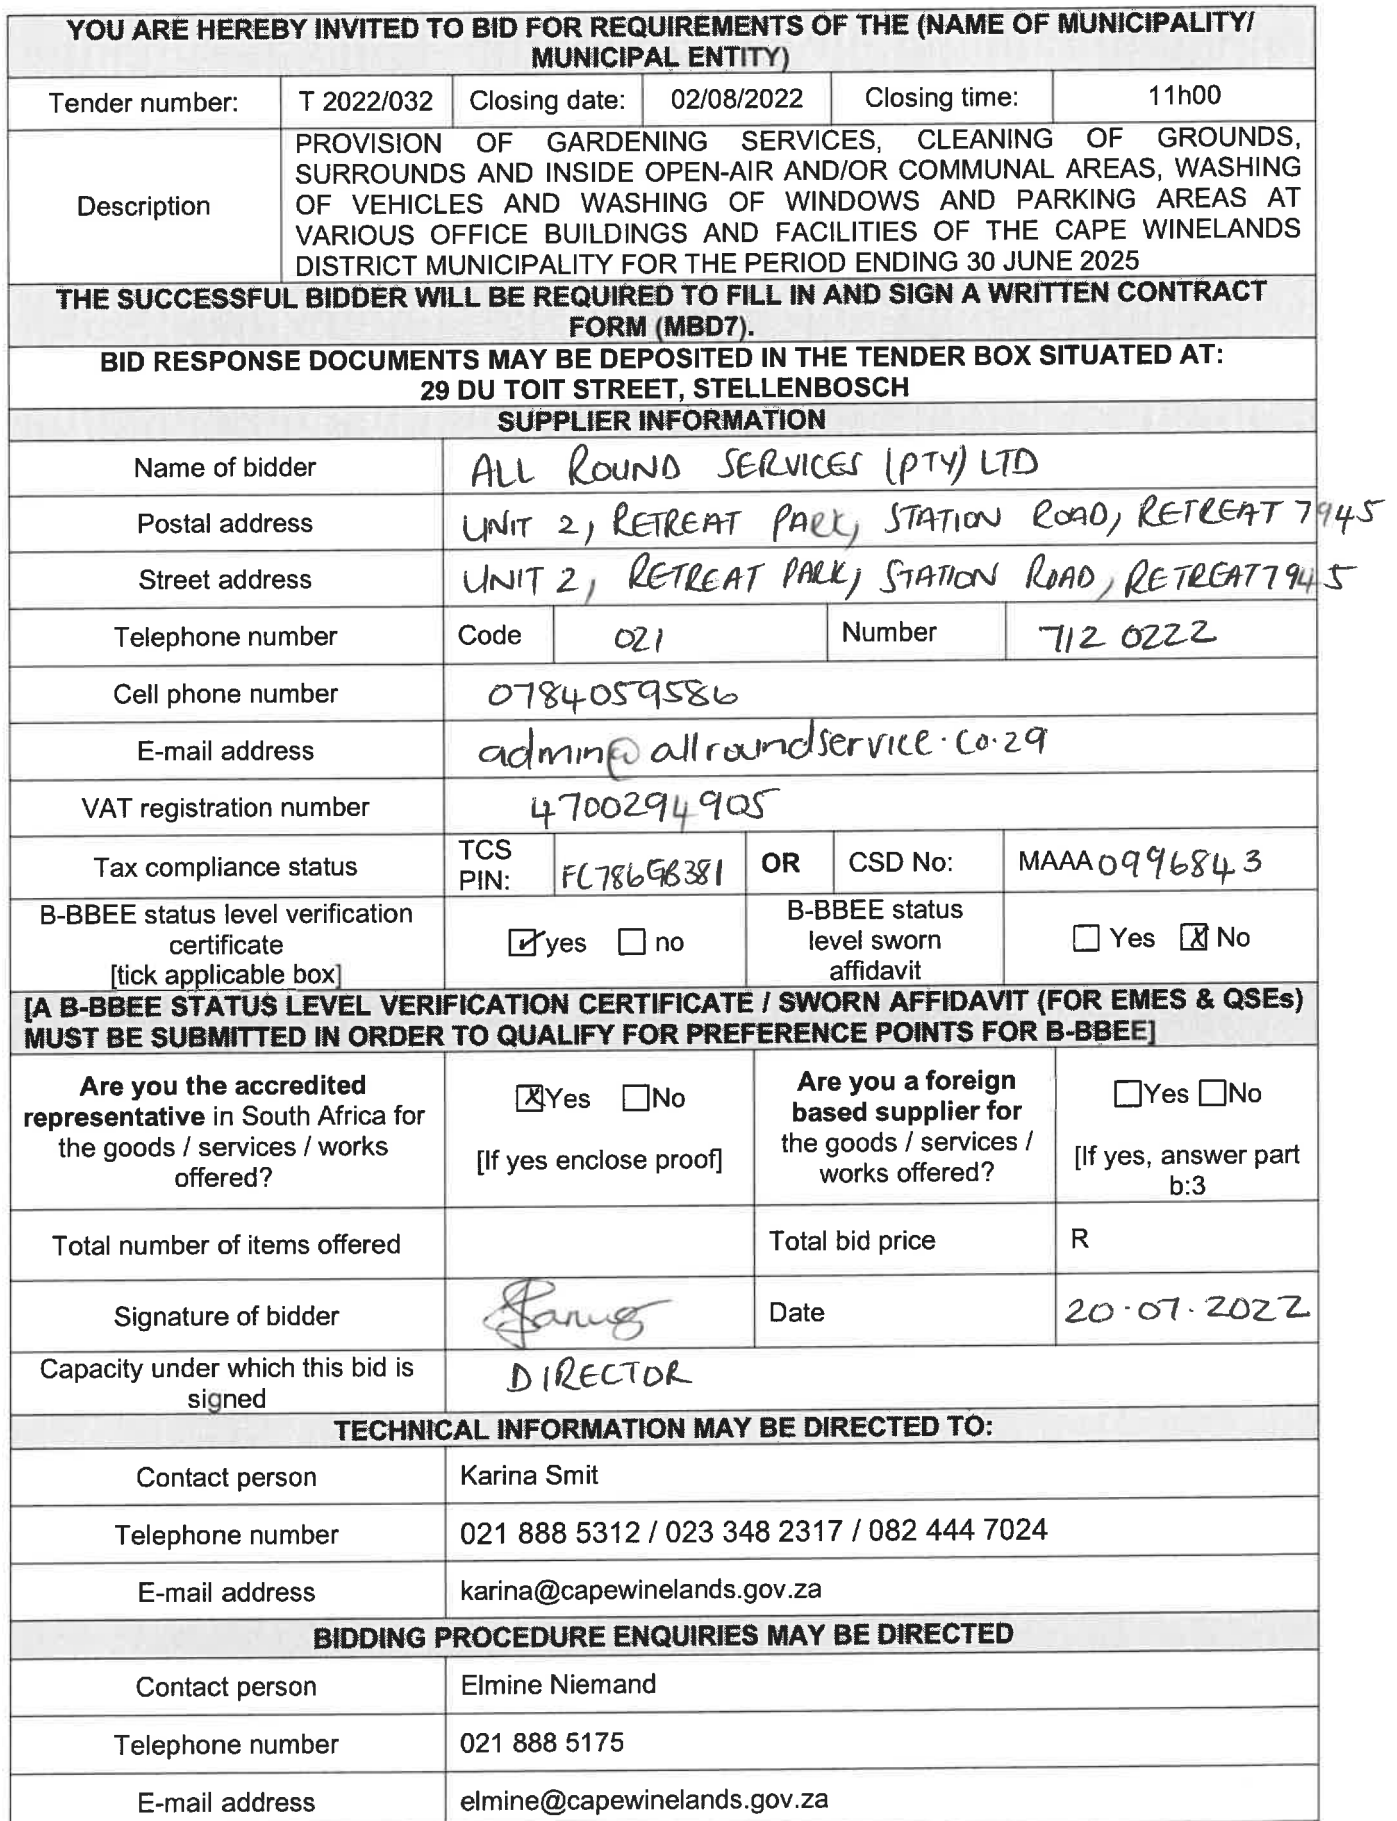 YOU ARE HEREBY INVITED TO BID FOR REQUIREMENTS OF THE (NAME OF MUNICIPALITY/
MUNICIPAL ENTITY)
Tender number: T 2022/032 Closing date: 02/08/2022 Closing time: 11h00
Description
PROVISION OF GARDENING SERVICES, CLEANING OF GROUNDS,
SURROUNDS AND INSIDE OPEN-AIR AND/OR COMMUNAL AREAS, WASHING
OF VEHICLES AND WASHING OF WINDOWS AND PARKING AREAS AT
VARIOUS OFFICE BUILDINGS AND FACILITIES OF THE CAPE WINELANDS
DISTRICT MUNICIPALITY FOR THE PERIOD ENDING 30 JUNE 2025
THE SUCCESSFUL BIDDER WILL BE REQUIRED TO FILL IN AND SIGN A WRITTEN CONTRACT
FORM (MBD7).
BID RESPONSE DOCUMENTS MAY BE DEPOSITED IN THE TENDER BOX SITUATED AT:
29 DU TOIT STREET, STELLENBOSCH
SUPPLIER INFORMATION
Name of bidder ALL ROUND SERVICES (PTY) LTD
Postal address UNIT 2, RETREAT PARK, STATION ROAD, RETREAT 7945
Street address UNIT 2, RETREAT PARK, STATION ROAD, RETREAT 7945
Telephone number Code 021 Number 712 0222
Cell phone number 0784059586
E-mail address admin@allroundservice.co.za
VAT registration number 4700294905
Tax compliance status TCS PIN: FC786GB381 OR CSD No: MAAA0996843
B-BBEE status level verification
certificate
[tick applicable box]
yes no
B-BBEE status
level sworn
affidavit
Yes No
[A B-BBEE STATUS LEVEL VERIFICATION CERTIFICATE / SWORN AFFIDAVIT (FOR EMES & QSEs)
MUST BE SUBMITTED IN ORDER TO QUALIFY FOR PREFERENCE POINTS FOR B-BBEE]
Are you the accredited
representative in South Africa for
the goods / services / works
offered?
Yes No
[If yes enclose proof]
Are you a foreign
based supplier for
the goods / services /
works offered?
Yes No
[If yes, answer part
b:3
Total number of items offered Total bid price R
Signature of bidder Date 20.07.2022
Capacity under which this bid is
signed
DIRECTOR
TECHNICAL INFORMATION MAY BE DIRECTED TO:
Contact person Karina Smit
Telephone number 021 888 5312 / 023 348 2317 / 082 444 7024
E-mail address karina@capewinelands.gov.za
BIDDING PROCEDURE ENQUIRIES MAY BE DIRECTED
Contact person Elmine Niemand
Telephone number 021 888 5175
E-mail address elmine@capewinelands.gov.za